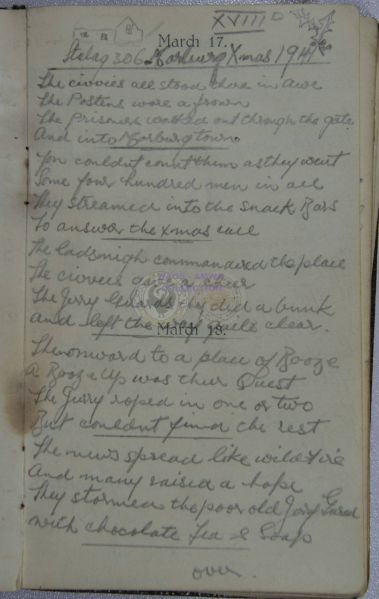 XVIII
March 17.
Stalag 306 Marburg Xmas 1941
The civvies all stood there in awe
The Postens wore a frown
The Prisoners walked out through the gate
And into Marburg town
You couldnt count them as they went
Some four hundred men in all
They streamed into the snack Bars
To answer the xmas call
The lads nigh commandeered the place
The civvies gave a cheer
The Jerry Guards they did a bunk
And left the way quite clear.
March 18.
Then onward to a place of Booze
A Booze Up was their Quest
The Jerry roped in one or two
But couldnt find the rest
The news spread like wild fire
And many raised a hope
They stormed the poor old Jerry Guard
With chocolate Tea & Soap
over.